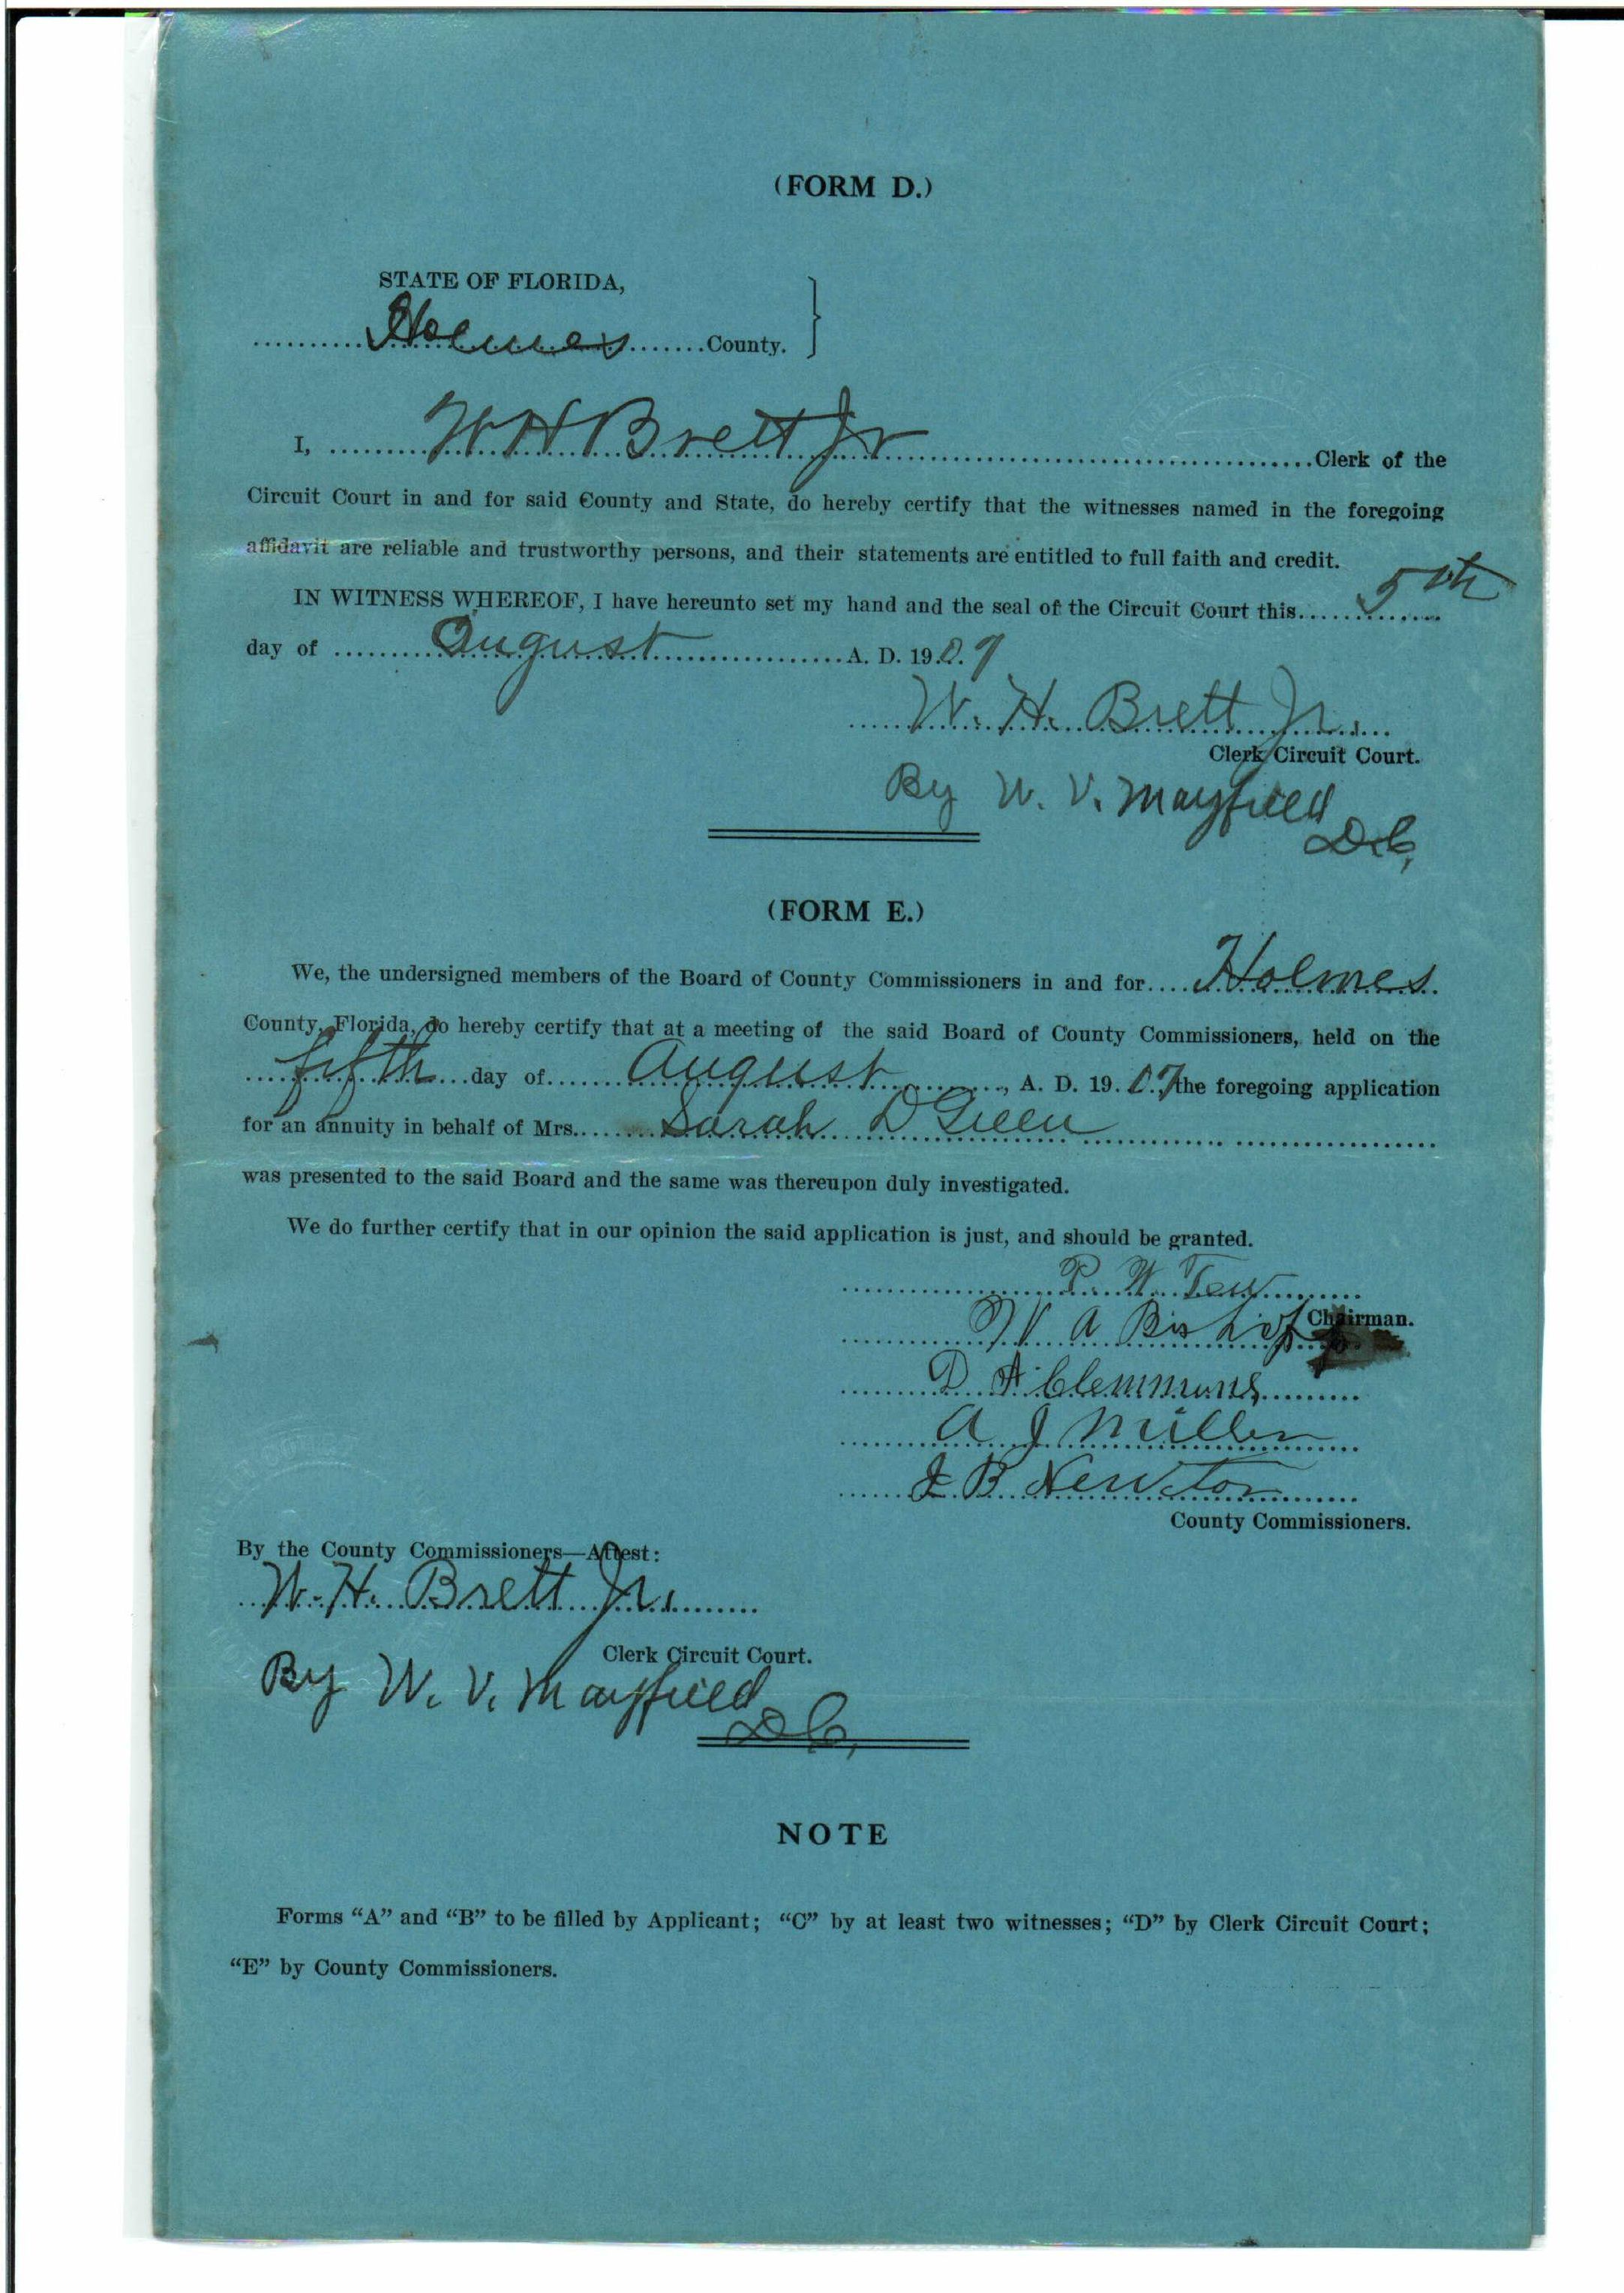 (FORM D.)
STATE OF FLORIDA,
Holmes County.
I, W H Brett Jr Clerk of the
Circuit Court in and for said County and State, do hereby certify that the witnesses named in the foregoing
affidavit are reliable and trustworthy persons, and their statements are entitled to full faith and credit.
IN WITNESS WHEREOF, I have hereunto set my hand and the seal of the Circuit Court this 5th
day of August A. D. 190
W. H. Brett Jr.
Clerk Circuit Court.
By W. V. Mayfield
D.C.
(FORM E.)
We, the undersigned members of the Board of County Commissioners in and for Holmes
County, Florida, do hereby certify that at a meeting of the said Board of County Commissioners, held on the
fifth day of August, A. D. 1907 the foregoing application
for an annuity in behalf of Mrs. Sarah D Green
was presented to the said Board and the same was thereupon duly investigated.
We do further certify that in our opinion the said application is just, and should be granted.
P. W. Tew
Chairman.
A Bishop
D A Clemmons
A J Miller
J B Newton
County Commissioners.
By the County Commissioners—Attest:
W. H. Brett Jr.
Clerk Circuit Court.
By W. V. Mayfield
D C,
NOTE
Forms “A” and “B” to be filled by Applicant; “C” by at least two witnesses; “D” by Clerk Circuit Court;
“E” by County Commissioners.